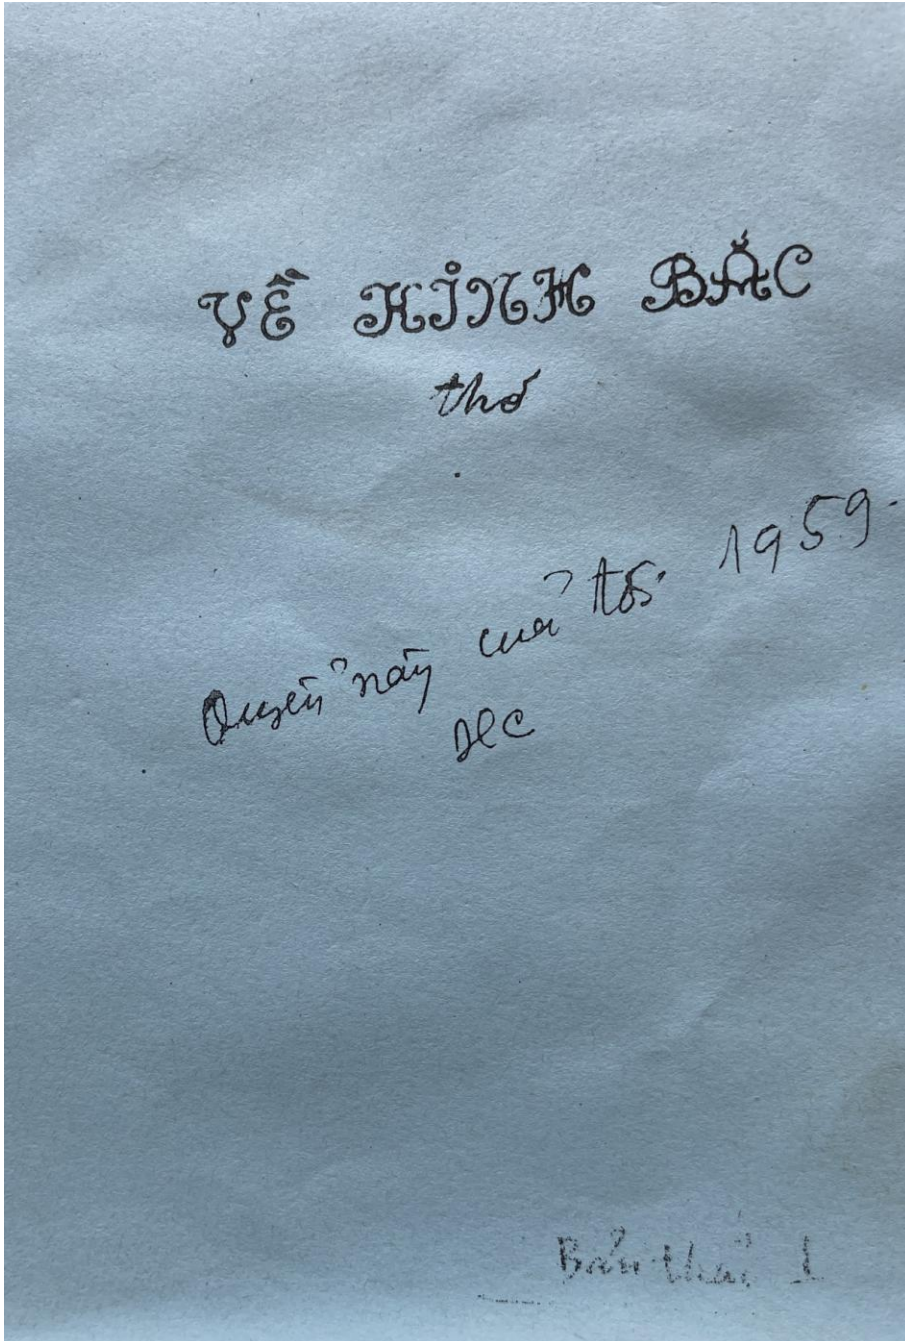 VỀ KINH BẮC
thơ
Quyển này của tôi 1959.
HC
Bản thảo 1